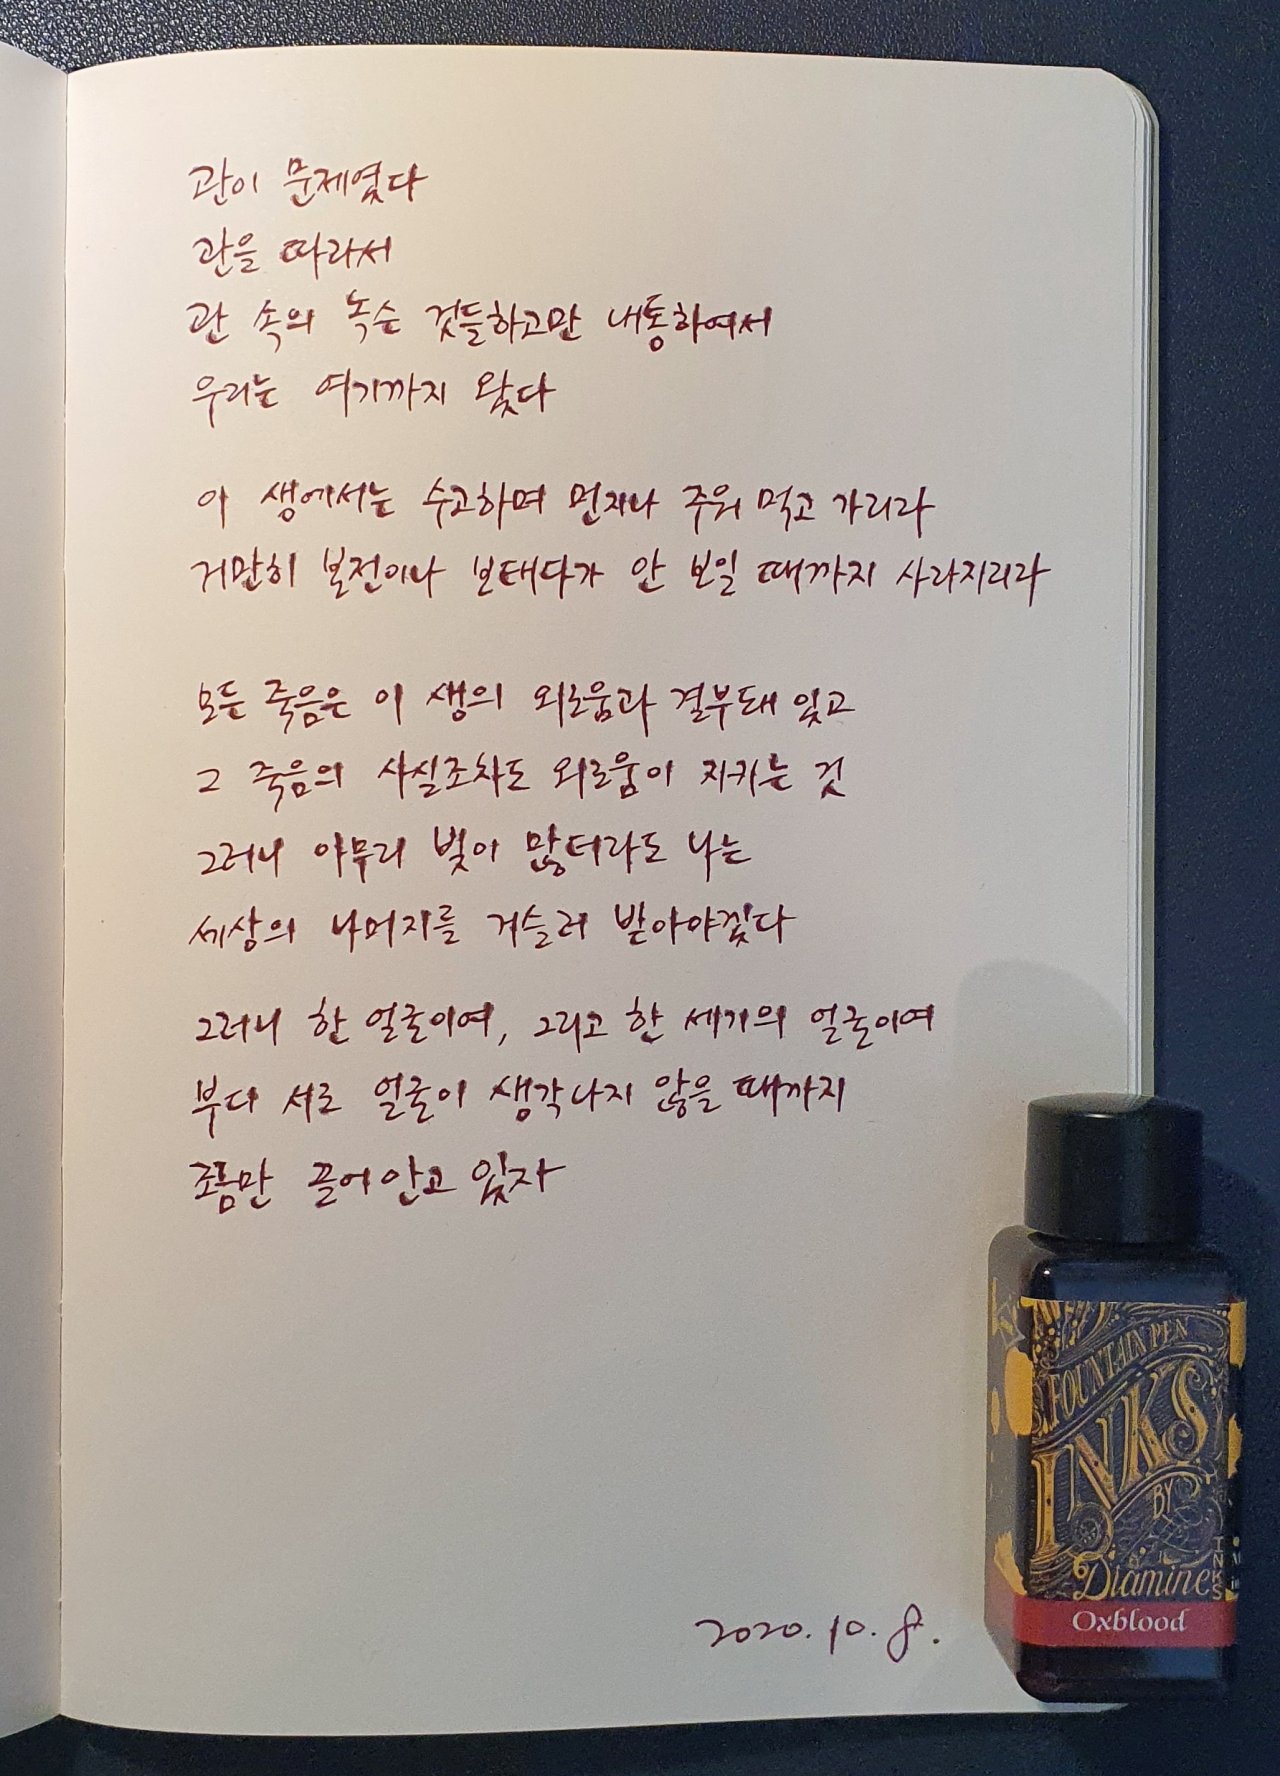 관이 문제였다
관을 따라서
관 속의 녹슨 것들하고만 내통하여서
우리는 여기까지 왔다
이 생에서는 수고하며 먼지나 주워 먹고 가리라
거만히 본전이나 보태다가 안 보일 때까지 사라지리라
모든 죽음은 이 생의 외로움과 결부돼 있고
그 죽음의 사실조차도 외로움이 지키는 것
그러니 아무리 빚이 많더라도 나는
세상의 나머지를 거슬러 받아야겠다
그러니 한 얼굴이여, 그리고 한 세기의 얼굴이여
부디 서로 얼굴이 생각나지 않을 때까지
조롱만 끌어안고 있자
2020. 10. 8.
FOUNTAIN PEN
INKS
BY
Diamine
INKS
Oxblood